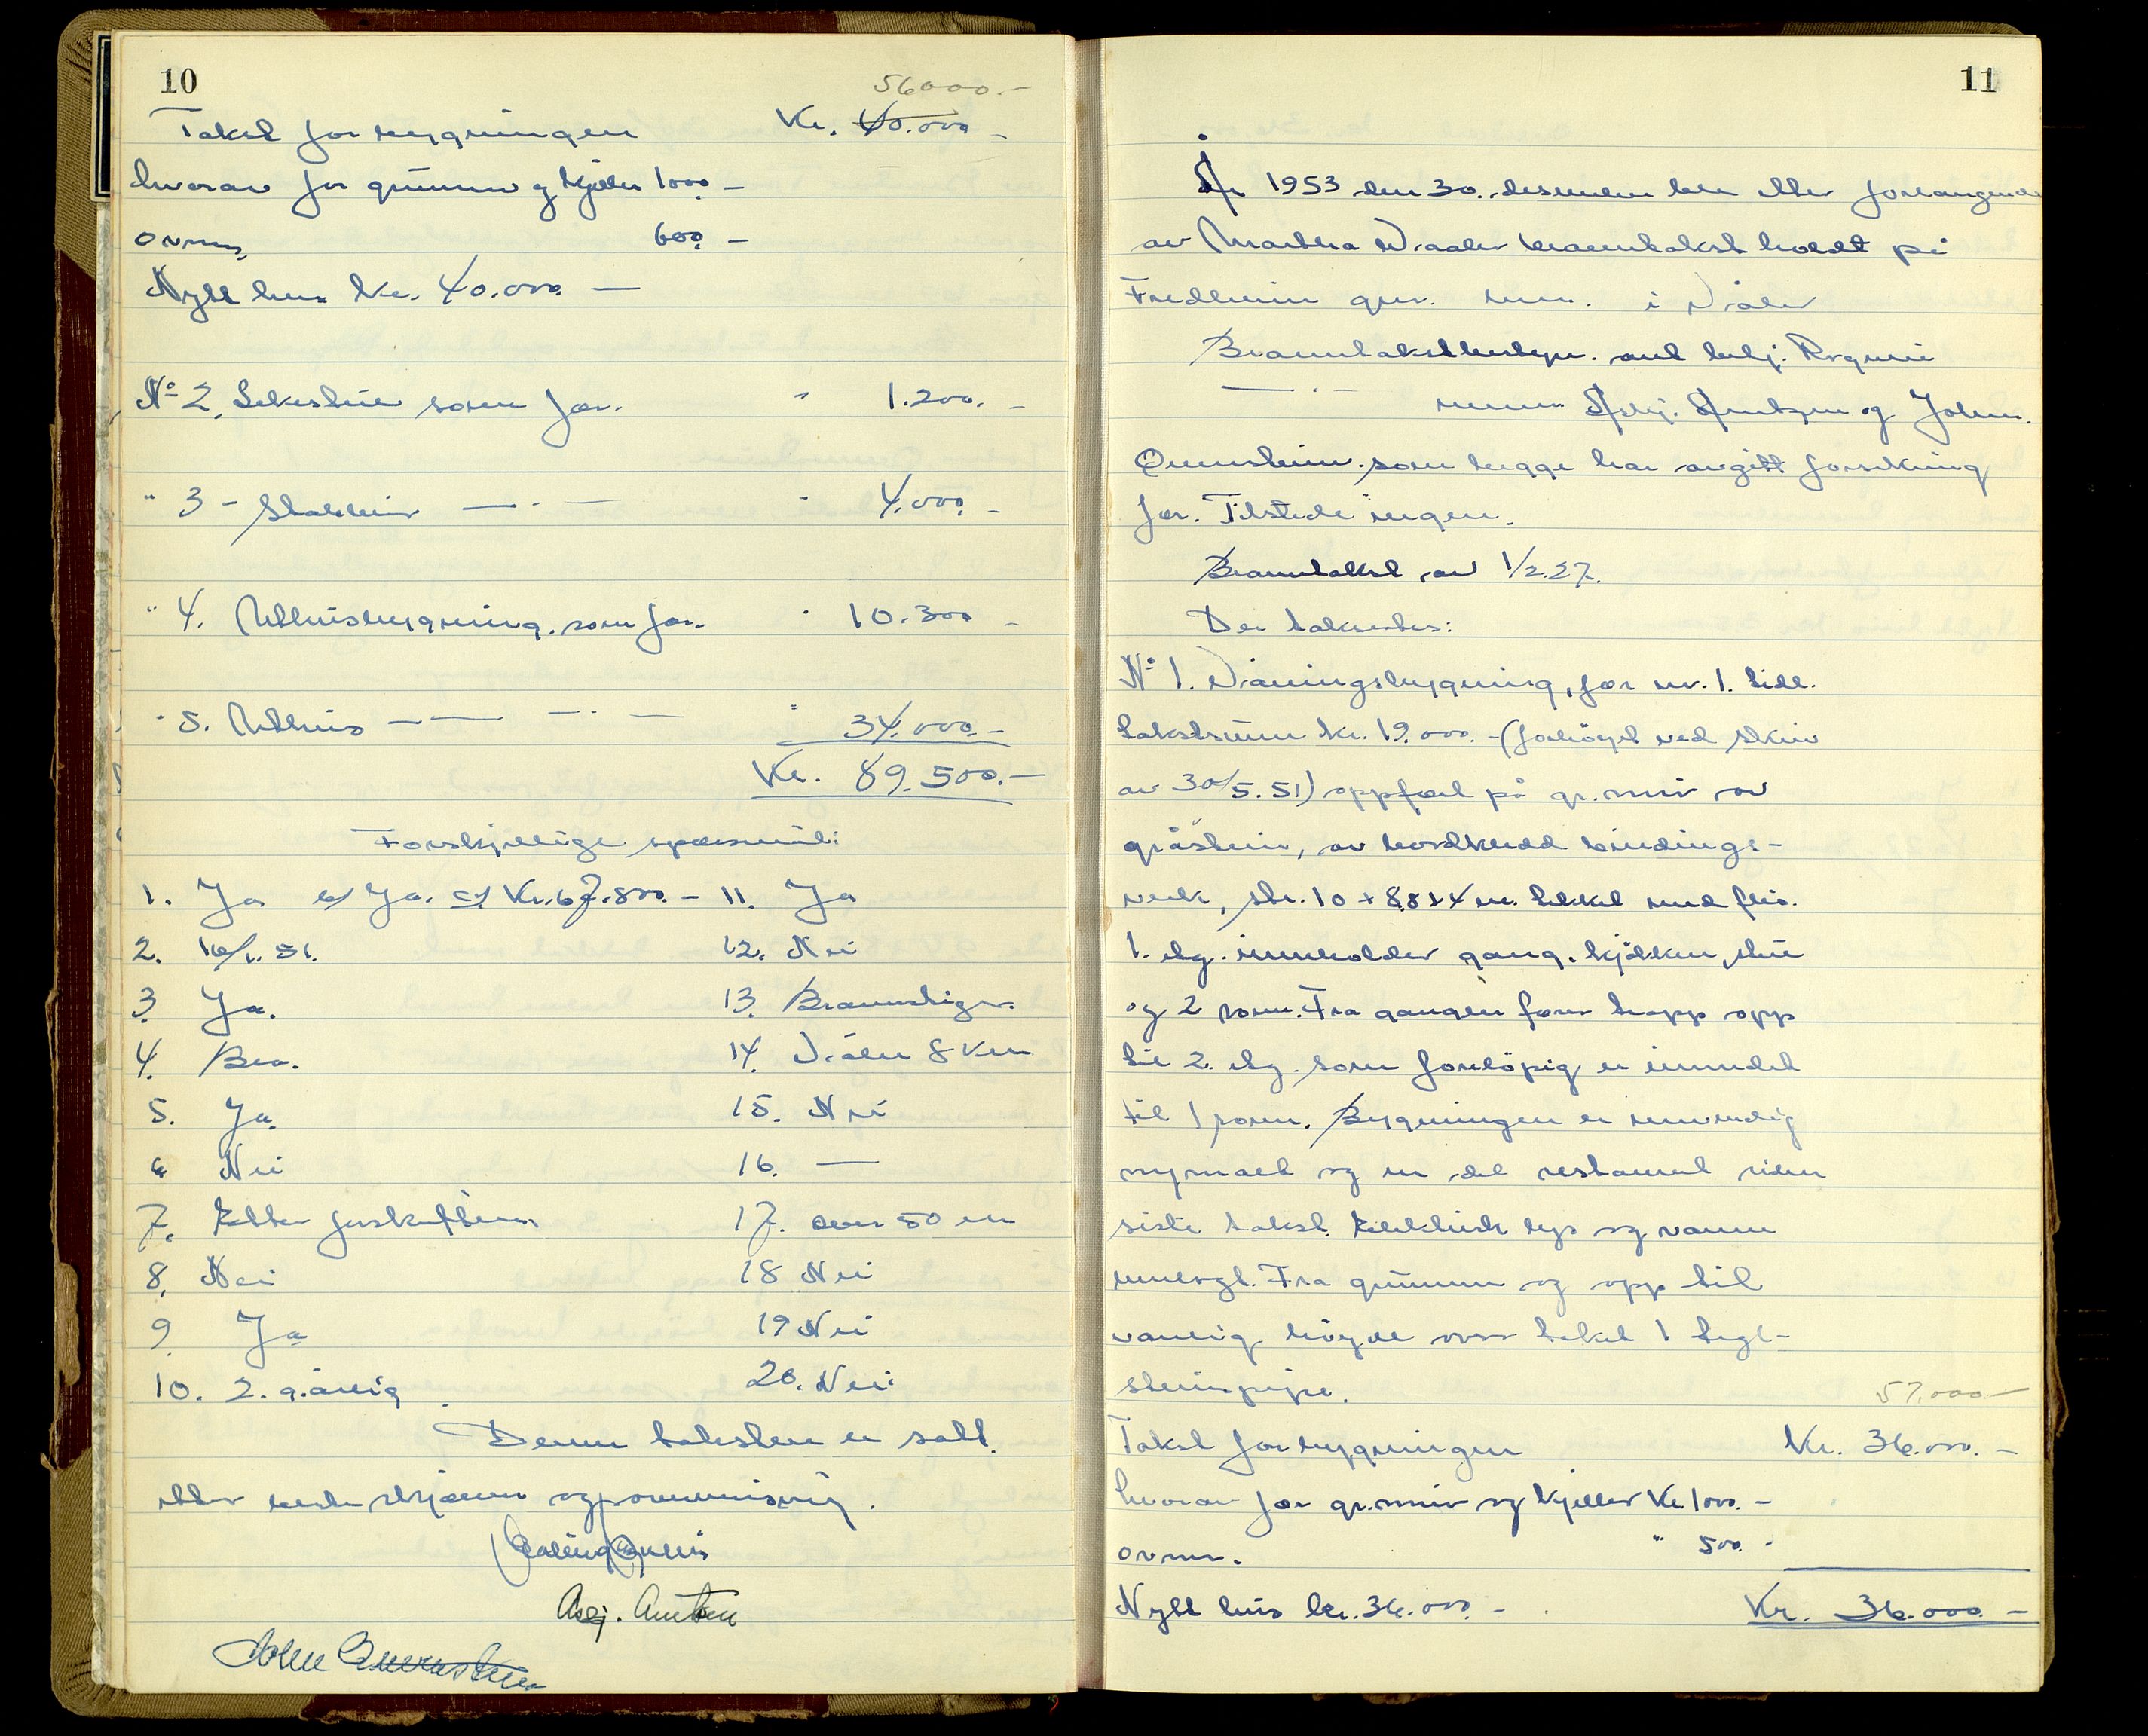 10
56000.-
Takst for bygningen Kr. 40.000 -
hvorav for grunnm og kjeller 1000.-
ovner 600.-
Nytt hus kr. 40.000 -
No 2. som før. " 1.200. -
" 3 - Stabbur — " — " 4.000. -
" 4. Uthusbygning. som før. " 10.300 -
" 5. Uthus — " — " — " 34.000.-
Kr. 89.500.-
Forskjellige spørsmål:
1. Ja b/ Ja. c/ Kr. 67.800.- 11. Ja
2. 12. Nei
3. Ja. 13. Brannstiger.
4. Bra. 14. Våler 8 km
5. Ja. 15. Nei
6 Nei 16. —
7. Etter forskriftene 17. over 50 m
8. Nei 18 Nei
9 Ja 19 Nei
10. 2. g. årlig 20. Nei
Denne taksten er satt
etter beste skjønn og samvittighet.
Asbj. Arntzen
John Ovrenstein
11
År 1953 den 30. desember ble etter forlangende
av Martha Vaaler branntakst holdt på
Fredheim gnr. bnr. i Våler
Branntakstbestyr. ant. betj.
menn Asbj. Arntzen og John.
som begge har avgitt forsikring
før. Tilstede ingen.
Branntakst av 1/2.27.
Der taksertes:
No 1. Våningsbygning, før nr. 1. tidl.
takstsum kr. 19.000.-(forhøyet ved skriv
av 30/5.51) oppført på gr.mur av
gråstein, av bordkledd bindings-
verk, str. 10 x 8,8 x 4 m. tekket med flis.
1. etg. inneholder gang, kjøkken, stue
og 2 rom. Fra gangen fører trapp opp
til 2. etg. som foreløpig er innredet
til 1 rom. Bygningen er innvendig
nymalt og en del restaurert siden
siste takst. Elektrisk lys og vann
innlagt. Fra grunnen og opp til
vanlig høyde over taket 1 tegl-
steinspipe.
57.000.-
Takst for bygningen Kr. 36.000.-
hvorav for gr.mur og kjeller Kr 1000.-
ovner. " 500.-
Nytt hus kr. 36.000.- Kr. 36.000.-